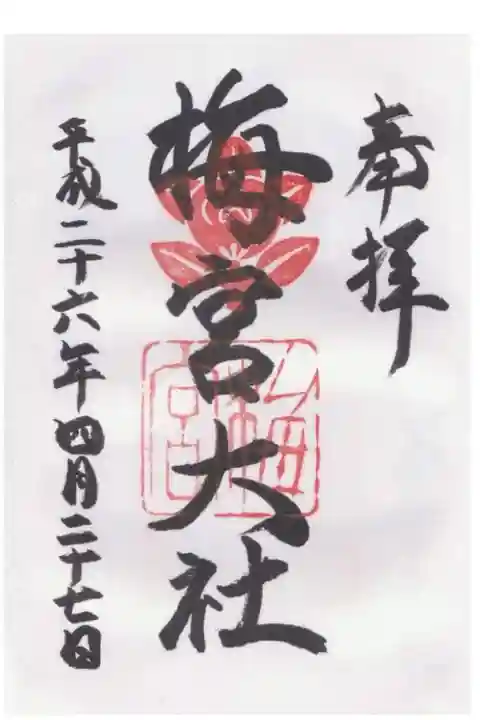 奉拝
梅宮大社
平成二十六年四月二十七日